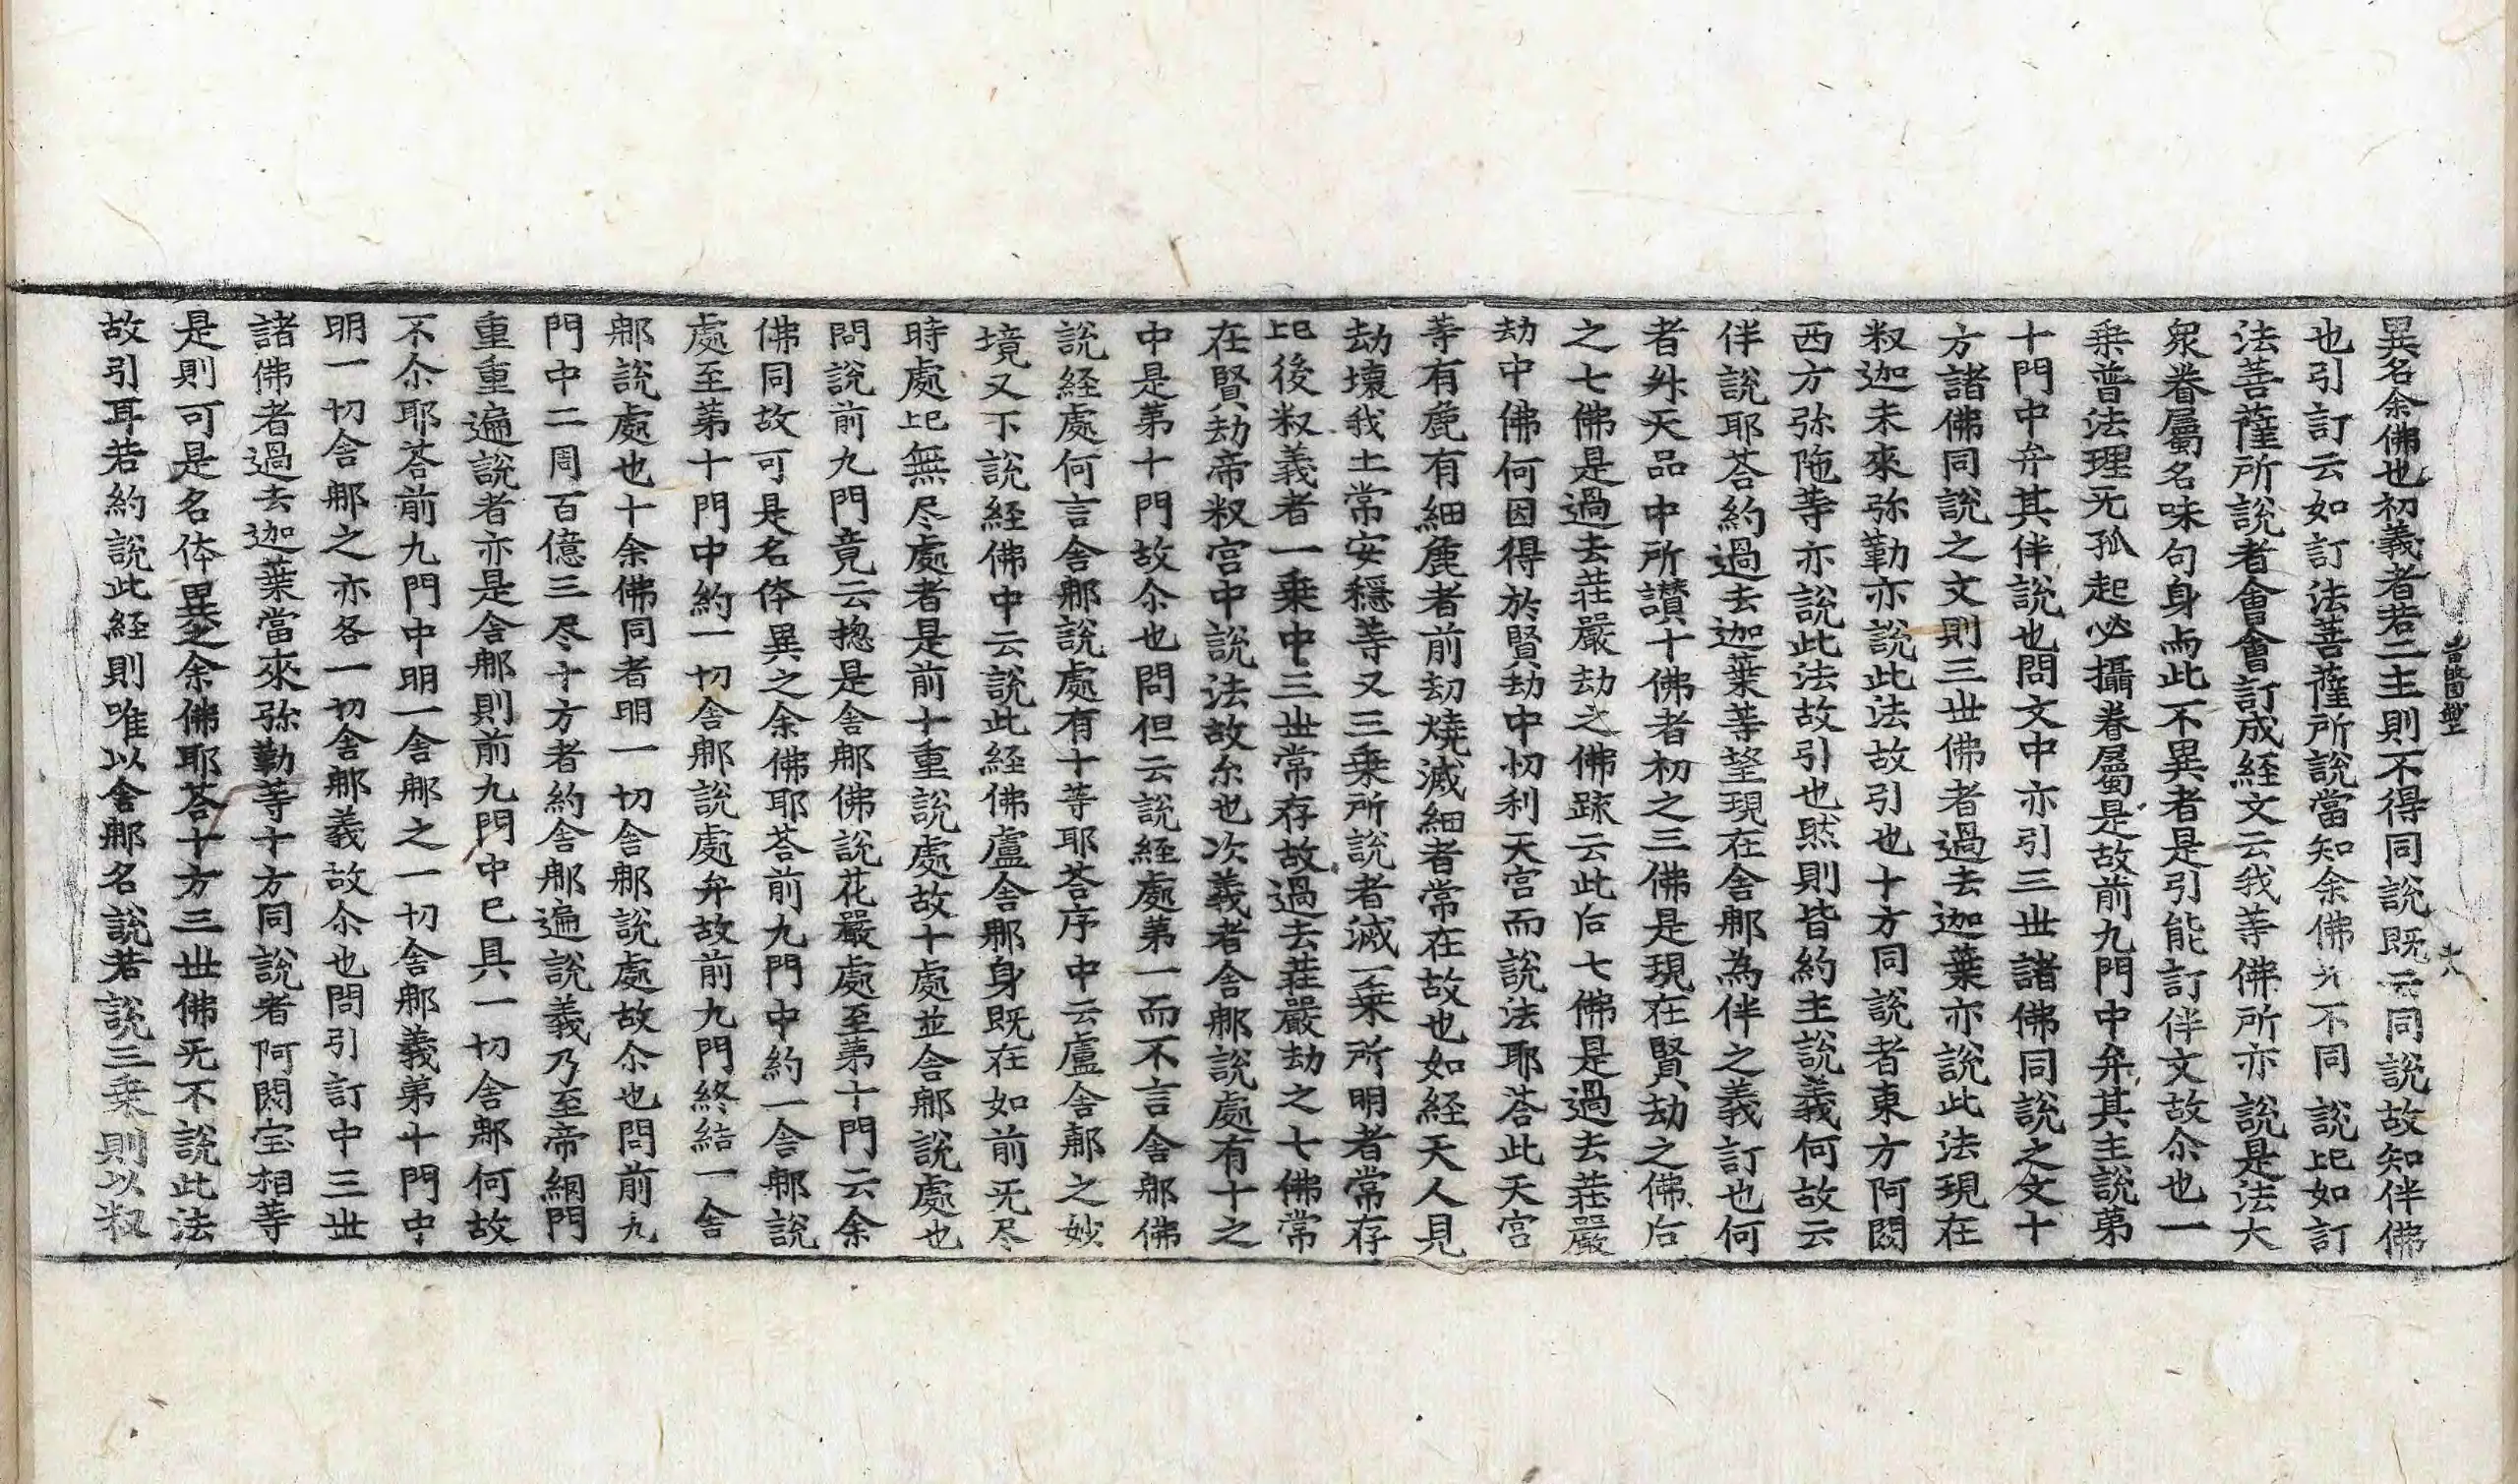 異名余佛也初義者若二主則不得同說旣云同說故知伴佛
也引訂云如訂法菩薩所說當知余佛光不同說此如訂
法菩薩所說者會會訂成経文云我等佛所亦說是法大
衆眷屬名味句身与此不異者是引能訂伴文故尒也一
乗普法理无孤起必攝眷屬是故前九門中弁其主說苐
十門中弁其伴說也問文中亦引三丗諸佛同說之文十
方諸佛同說之文則三丗佛者過去迦葉亦說此法現在
釈迦未來弥勤亦說此法故引也十方同說者東方阿閦
西方弥陁等亦說此法故引也然則皆約主說義何故云
伴說耶荅約過去迦葉等望現在舎那為伴之義訂也何
者舛天品中所讃十佛者初之三佛是現在賢劫之佛后
之七佛是過去莊嚴劫之佛䟽云此后七佛是過去莊嚴
劫中佛何因得於賢劫中忉利天宮而說法耶荅此天宮
等有麁有細麁者前劫燒滅細者常在故也如経天人見
劫壞我土常安穩等又三乗所說者滅一乗所明者常存
此後釈義者一乗中三丗常存故過去莊嚴劫之七佛常
在賢劫帝釈宮中說法故尒也次義者舎那說處有十之
中是第十門故尒也問但云說経處苐一而不言舎那佛
說経處何言舎那說處有十等耶荅序中云盧舎那之妙
境又下說経佛中云說此経佛盧舎那身旣在如前无尽
時處此無尽處者是前十重說處故十處並舎那說處也
問說前九門竟云揔是舎那佛說花嚴處至苐十門云余
佛同故可是名体異之余佛耶荅前九門中約一舎那說
處至苐十門中約一切舎那說處弁故前九門終結一舎
那說處也十余佛同者明一切舎那說處故尒也問前九
門中二周百億三尽十方者約舎那遍說義乃至帝網門
重重遍說者亦是舎那則前九門中已具一切舎那何故
不尒耶荅前九門中明一舎那之一切舎那義苐十門中
明一切舎那之亦各一切舎那義故尒也問引訂中三丗
諸佛者過去迦葉當來弥勤等十方同說者阿閦宝相等
是則可是名体異之余佛耶荅十方三丗佛无不說此法
故引耳若約說此経則唯以舎那名說若說三乗則以釈